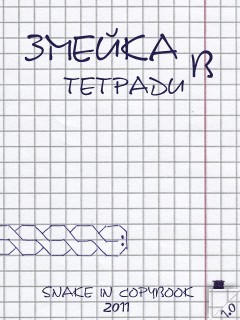 ЗМЕЙКА В
ТЕТРАДИ
SNAKE IN COPYBOOK
2011
2.0